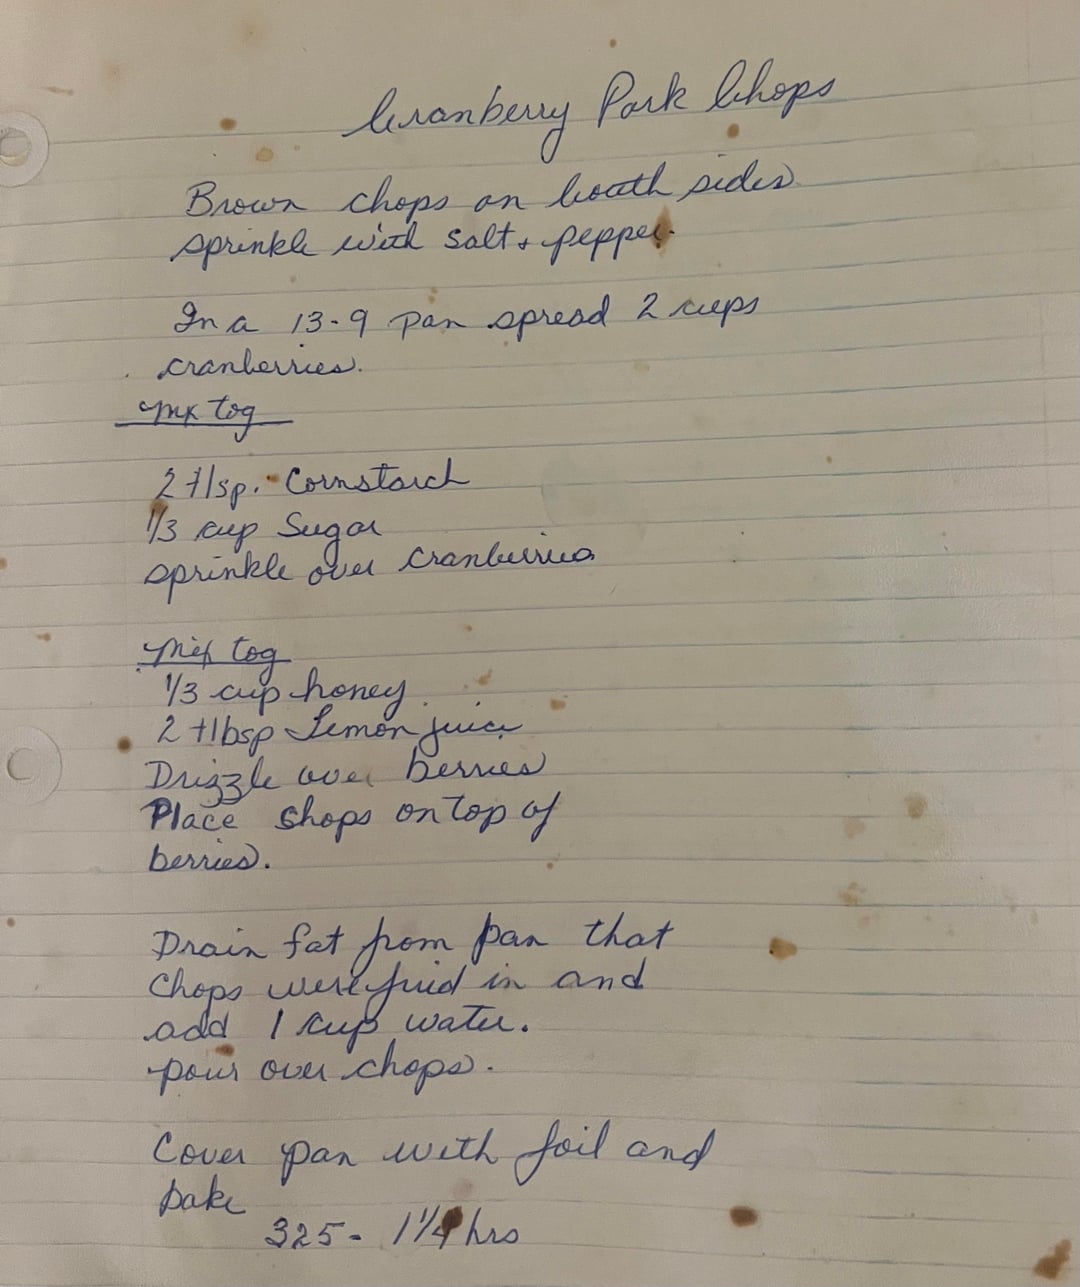 Cranberry Pork Chops
Brown chops on bouth sides
sprinkle with salt + pepper.
In a 13-9 pan spread 2 cups
cranberries.
Mix tog
2 tlsp. Cornstarch
1/3 cup Sugar
sprinkle over Cranberries
Mix tog
1/3 cup honey
2 tlbsp Lemon juice
Drizzle over berries
Place chops on top of
berries.
Drain fat from pan that
Chops were fried in and
add 1 cup water.
pour over chops.
Cover pan with foil and
bake
325- 1 1/4 hrs